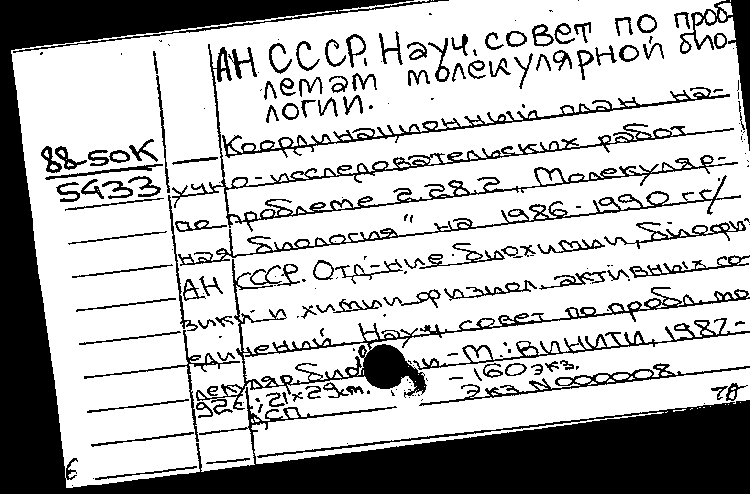 АН СССР. Науч. совет по проб-
лемам молекулярной био-
логии.
88-50К
5433
Координационный план на-
учно-исследовательских работ
по проблеме 2.28.2 „Молекуляр-
ная биология" на 1986-1990 гг/
АН СССР. Отд-ние биохимии, биофи
зики и химии физиол. активных со-
единений. Науч. совет по пробл. мо
лекуляр. био и.-М.: ВИНИТИ, 1987.-
21×29см. -160 экз.
ДСП. Экз N000008.
6